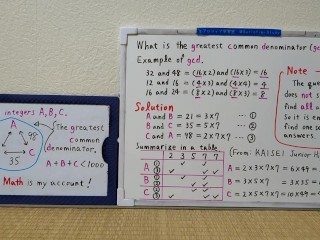 integers A,B,C.
A
98
C
35
The greatest
common
denominator,
A+B+C<1000
Math is my account!
What is the greatest common denominator (gc
Example of gcd.
32 and 48 = (16×2) and (16×3) = 16
12 and 16 = (4×3) and (4×4) = 4
16 and 24 = (8×2) and (8×3) = 8
Note
The qu
does not s
find all
So it is en
find one s
answers.
Solution
A and B = 21 = 3×7 ... ①
B and C = 35 = 5×7 ... ②
C and A = 98 = 2×7×7 ... ③
Summarize in a table
2 3 5 7 7
A ① ③
B ① ②
C ② ③
(From: KAISEI Junior H
A = 2×3×7×7 = 6×49 =
B = 3×5×7 = 3×35 =
C = 2×5×7×7 = 10×49 =